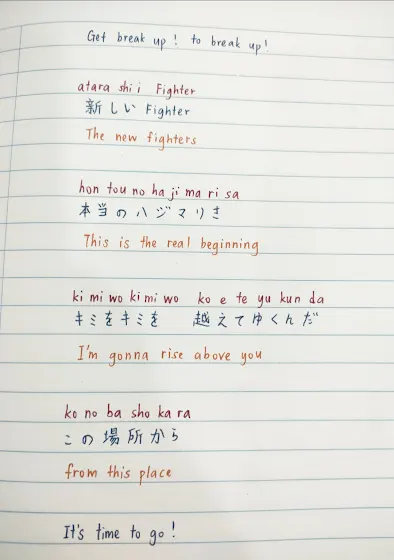 Get break up! to break up!
atara shi i Fighter
新しい Fighter
The new fighters
hon tou no ha ji ma ri sa
本当のハジマリさ
This is the real beginning
ki mi wo ki mi wo ko e te yu kun da
キミをキミを 越えてゆくんだ
I'm gonna rise above you
ko no ba sho ka ra
この場所から
from this place
It's time to go!